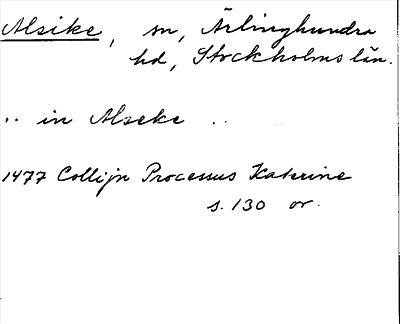 Alsike, sn, Ärlinghundra
hd, Stockholms län.
.. in Alseke ..
1477 Collijn Processus Katerine
s. 130 or.